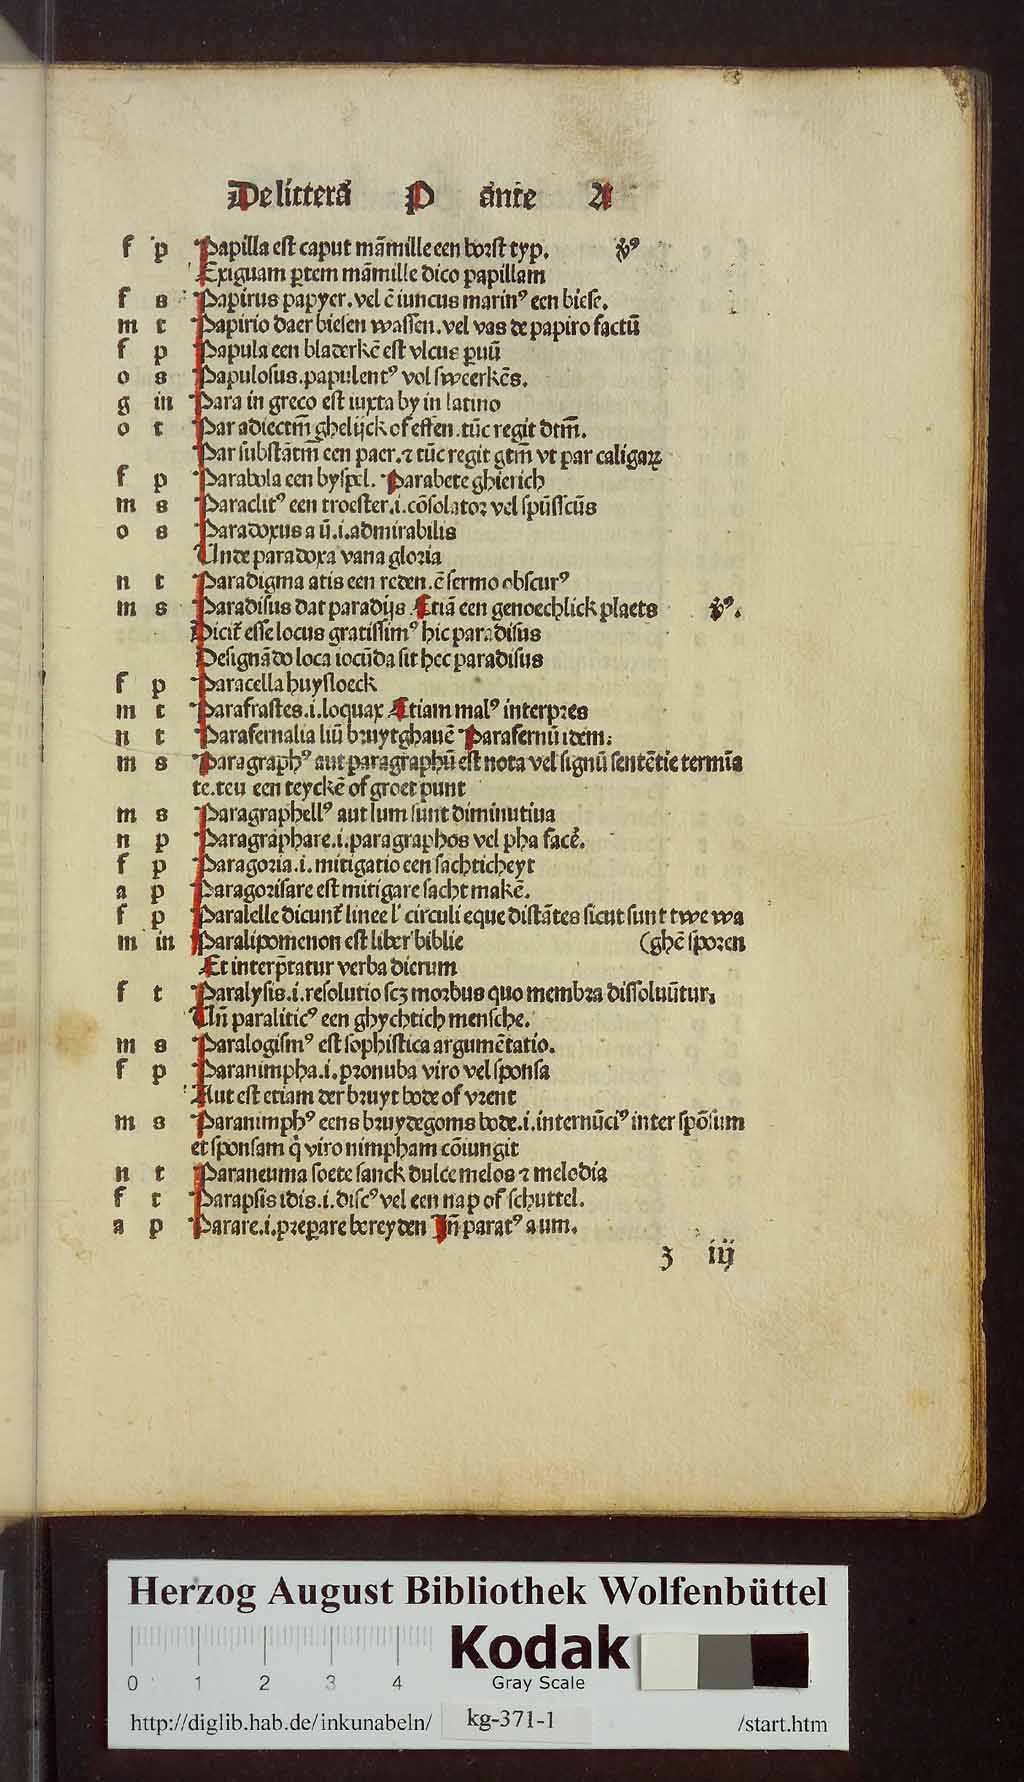 De litterā P ānte A
f p Papilla est caput mām̄ille een borst typ. v̓ꝰ
Exiguam ꝑtem mām̄ille dico papillam
f s Papirus papyer. vel ē iuncus marinꝰ een biese.
m t Papirio daer biesen wassen. vel vas de papiro factū
f p Papula een bladerkē est vlcus ꝑuū
o s Papulosus. papulentꝰ vol sweerkēs.
g in Para in greco est iuxta by in latino
o t Par adiectm̄ ghelijck of effen. tūc regit dtm̄.
Par substātm̄ een paer. ⁊ tūc regit gtm̄ vt par caligaꝝ
f p Parabola een byspel. Parabete ghierich
m s Paraclitꝰ een troester. i. cōsolator vel spūssctūs
o s Paradoxus a ū. i. admirabilis
Unde paradoxa vana gloria
n t Paradigma atis een reden. ē sermo obscurꝰ
m s Paradisus dat paradijs Etiā een genoechlick plaets v̓ꝰ.
Dicit᷑ esse locus gratissimꝰ hic paradisus
Designādo loca iocūda sit hec paradisus
f p Paracella huysloeck
m t Parafrastes. i. loquax Etiam malꝰ interpres
n t Parafernalia liū bruytghauē Parafernū idem.
m s Paragraphꝰ aut paragraphū est nota vel signū sentētie termīa
te. teu een teyckē of groet punt
m s Paragraphellꝰ aut lum sunt diminutiua
n p Paragraphare. i. paragraphos vel pha face᷑.
f p Paragoria. i. mitigatio een sachticheyt
a p Paragorisare est mitigare sacht makē.
f p Paralelle dicunt᷑ linee l' circuli eque distātes sicut sunt twe wa
m in Paralipomenon est liber biblie (ghē sporen
Et interp̄tatur verba dierum
f t Paralysis. i. resolutio scꝫ morbus quo membra dissoluūtur.
Un̄ paraliticꝰ een ghychtich mensche.
m s Paralogismꝰ est sophistica argumētatio.
f p Paranimpha. i. pronuba viro vel sponsa
Aut est etiam der bruyt bode of vrent
m s Paranimphꝰ eens bruydegoms bode. i. internūciꝰ inter spōsum
et sponsam q̇ viro nimpham cōiungit
n t Paraneuma soete sanck dulce melos ⁊ melodia
f t Parapsis idis. i. discꝰ vel een nap of schuttel.
a p Parare. i. preꝑare bereyden In̄ paratꝰ a um.
ʒ iij
Herzog August Bibliothek Wolfenbüttel
0 1 2 3 4
Kodak
Gray Scale
http://diglib.hab.de/inkunabeln/ kg-371-1 /start.htm